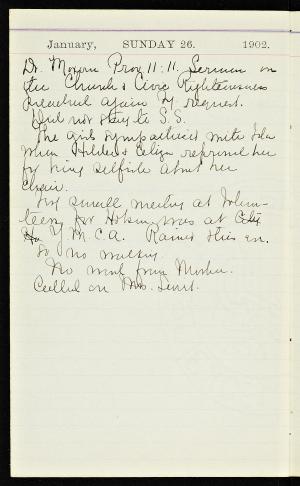 January, SUNDAY 26. 1902.
Dr. Moxom Prov 11:11. Sermon on
the Church & Civic Righteousness
preached again by request.
Did not stay to S.S.
The girls sympathized with Ida
when Hilda & Celiza reproved her
for being selfish about her
chair.
small meeting at
for was at City
Y.M.C.A. Rained this eve.
So no walking.
No word from Mother.
Called on Mrs.